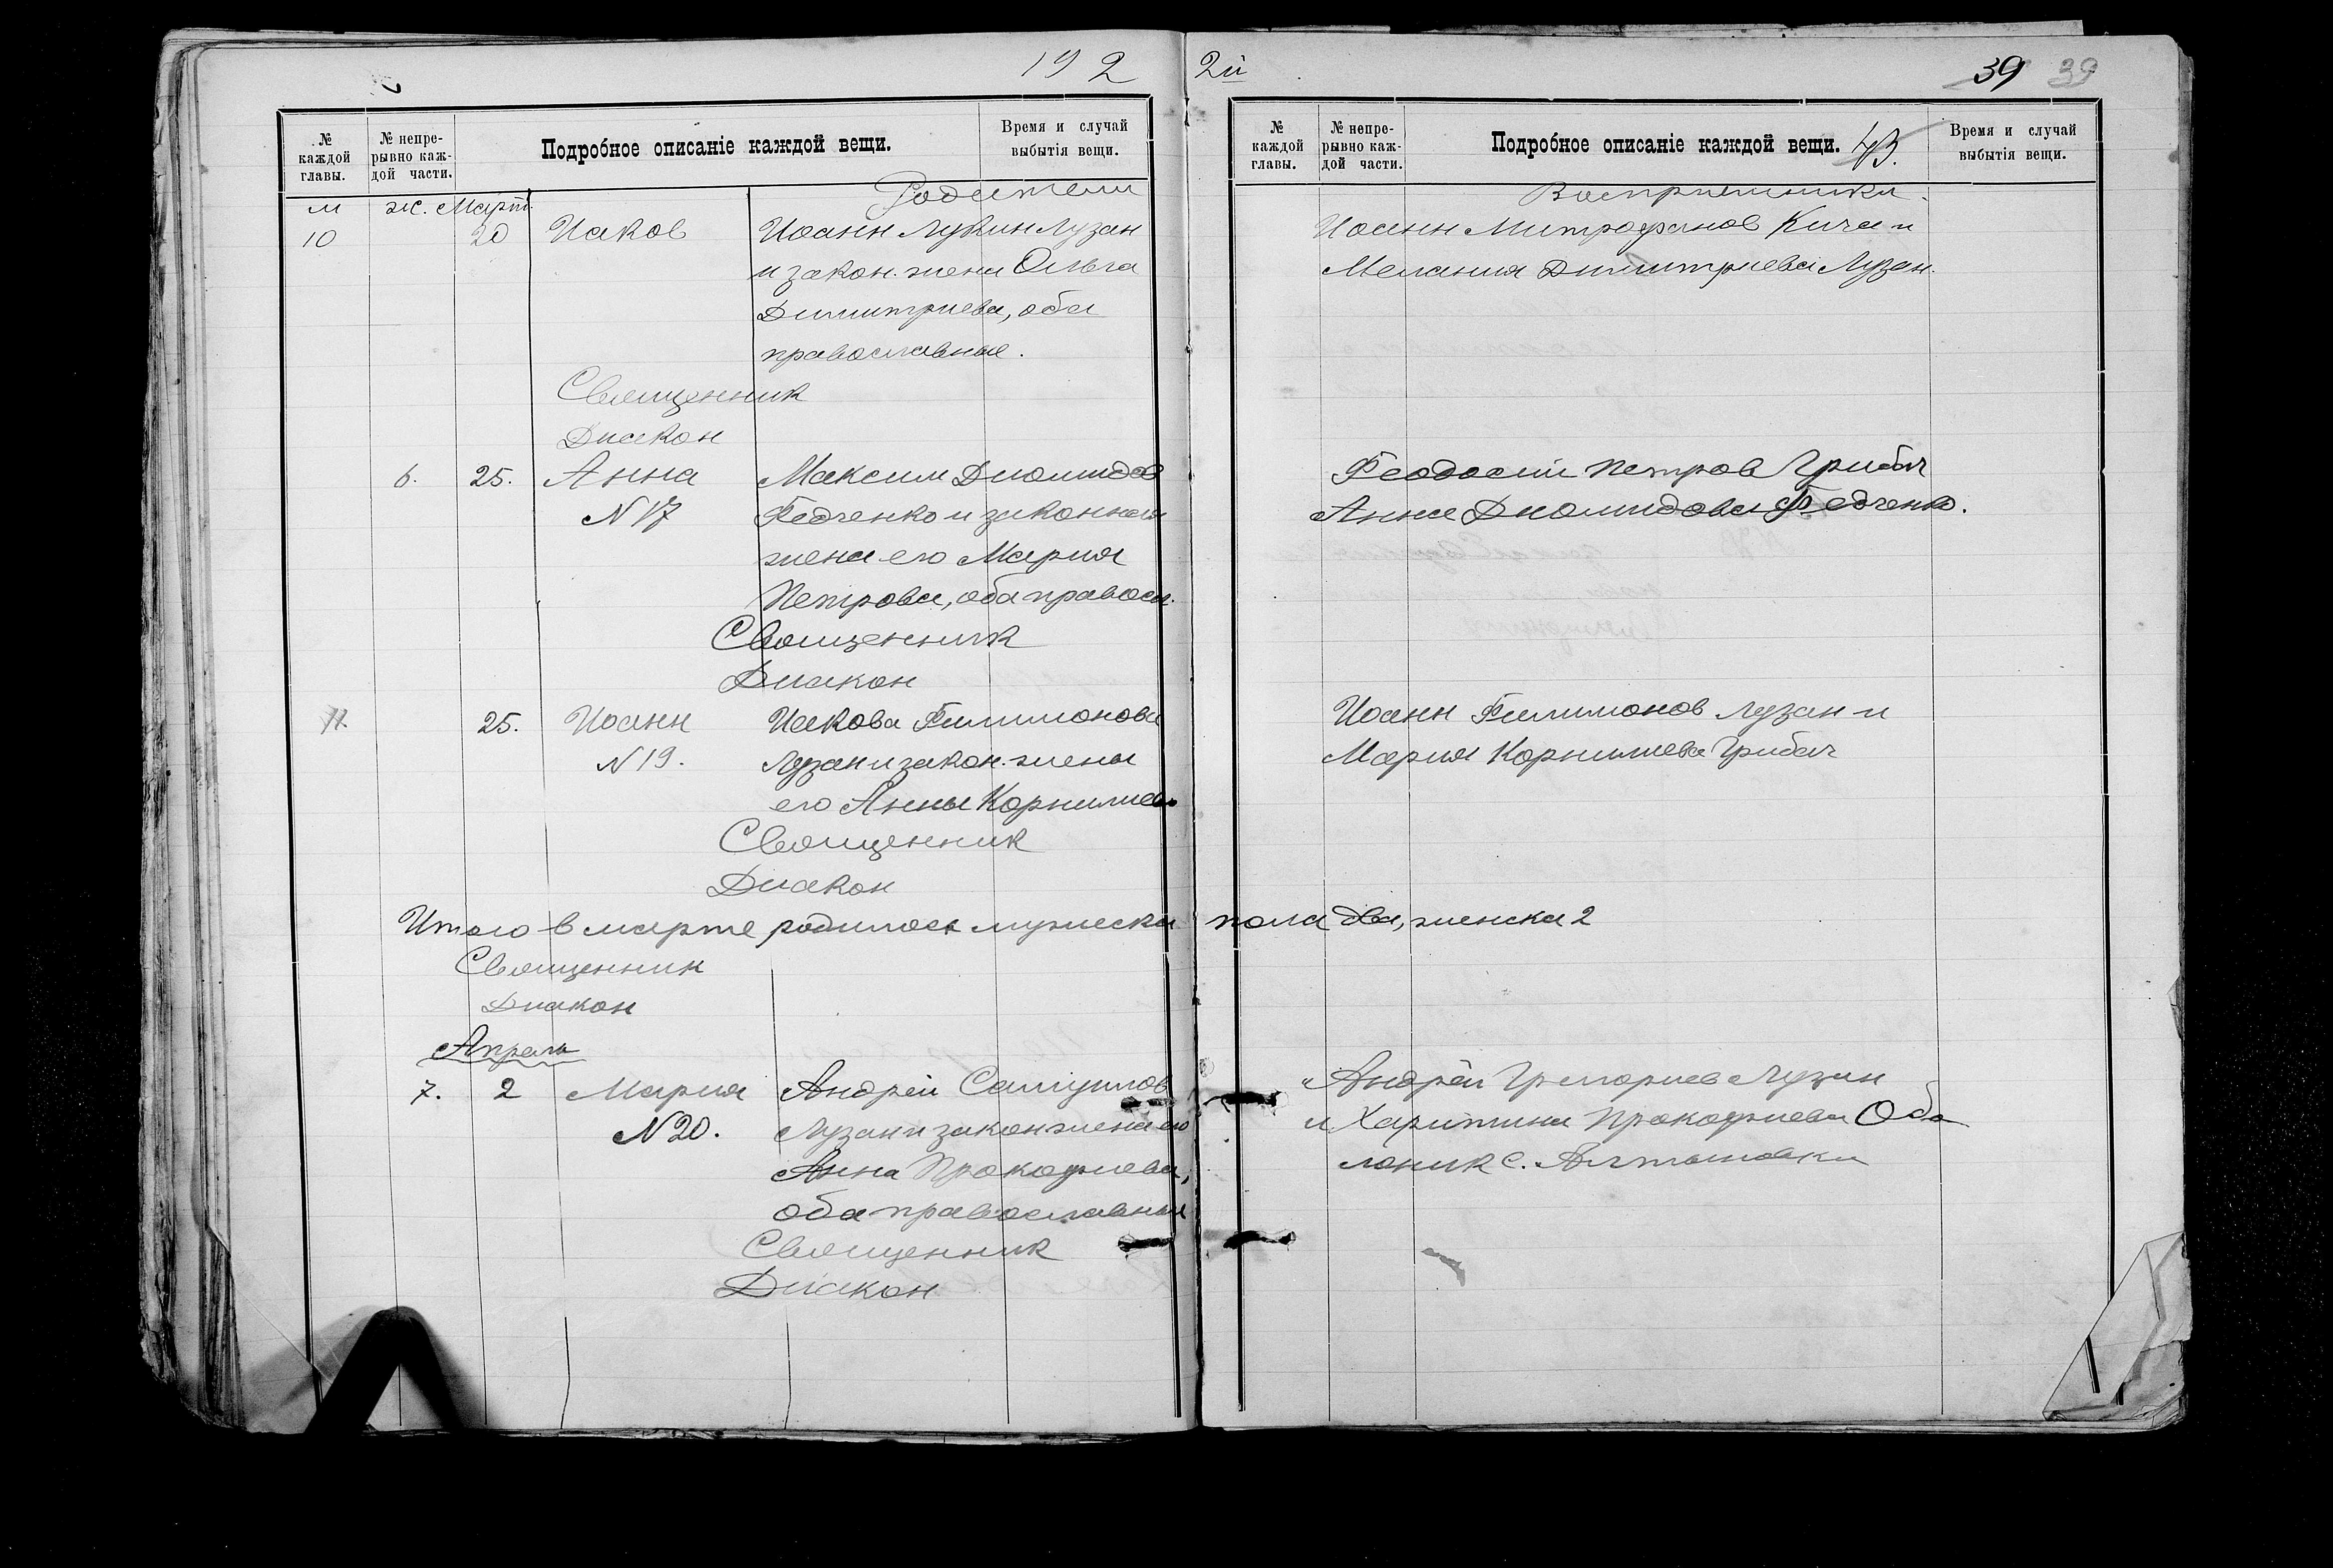 192
2й
39 39
№ каждой главы.
№ непрерывно каждой части.
Подробное описаніе каждой вещи.
Время и случай выбытія вещи.
м ж. Март. Родители
10 20 Иаков Иоанн Лукин Лузан
и закон. жена Ольга
Димитриева, оба
православные.
Священник
Диакон
6. 25. Анна Максим Диомидов
N 17 Федченко и законная
жена его Мария
Петрова, оба правосл.
Священник
Диакон
11. 25. Иоанн Иакова Филимонова
N 19. Лузан и закон. жены
его Анны Корнилиев
Священник
Диакон
Итого в марте родилось мужеска
Священник
Диакон
Апрель
7. 2 Мария Андрей Самуилов
N 20. Лузан и закон жена его
Анна Прокофиева,
оба православные
Священник
Диакон
№ каждой главы.
№ непрерывно каждой части.
Подробное описаніе каждой вещи.
Время и случай выбытія вещи.
Восприемники.
Иоанн Митрофанов Кича и
Мелания Димитриева Лузан.
Феодосий Петров Грибач
Анна Диомидова Федченко.
Иоанн Филимонов Лузан и
Мария Корнилиева Грибач
пола два, женска 2
Андрей Григориев Лузан
и Харитина Прокофиева Обо
лоник с. Алтыновки